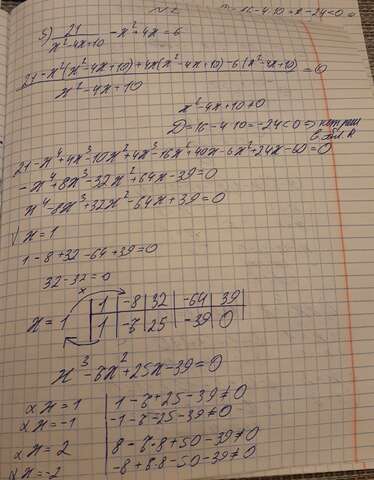 D = 16 - 4·10 = -24 < 0
5) 21/(x²-4x+10) - x² + 4x = 6
(21 - x²(x²-4x+10) + 4x(x²-4x+10) - 6(x²-4x+10))/(x²-4x+10) = 0
x²-4x+10≠0
D = 16 - 4·10 = -24 < 0 ⇒ нет реш
21 - x⁴ + 4x³ - 10x² + 4x³ - 16x² + 40x - 6x² + 24x - 60 = 0
-x⁴ + 8x³ - 32x² + 64x - 39 = 0
x⁴ - 8x³ + 32x² - 64x + 39 = 0
√ x = 1
1 - 8 + 32 - 64 + 39 = 0
32 - 32 = 0
x
1 | -8 | 32 | -64 | 39
x = 1 | 1 | -7 | 25 | -39 | 0
x³ - 7x² + 25x - 39 = 0
x = 1 | 1 - 7 + 25 - 39 ≠ 0
x = -1 | -1 - 7 - 25 - 39 ≠ 0
x = 2 | 8 - 7·8 + 50 - 39 ≠ 0
x = -2 | -8 + 8·8 - 50 - 39 ≠ 0